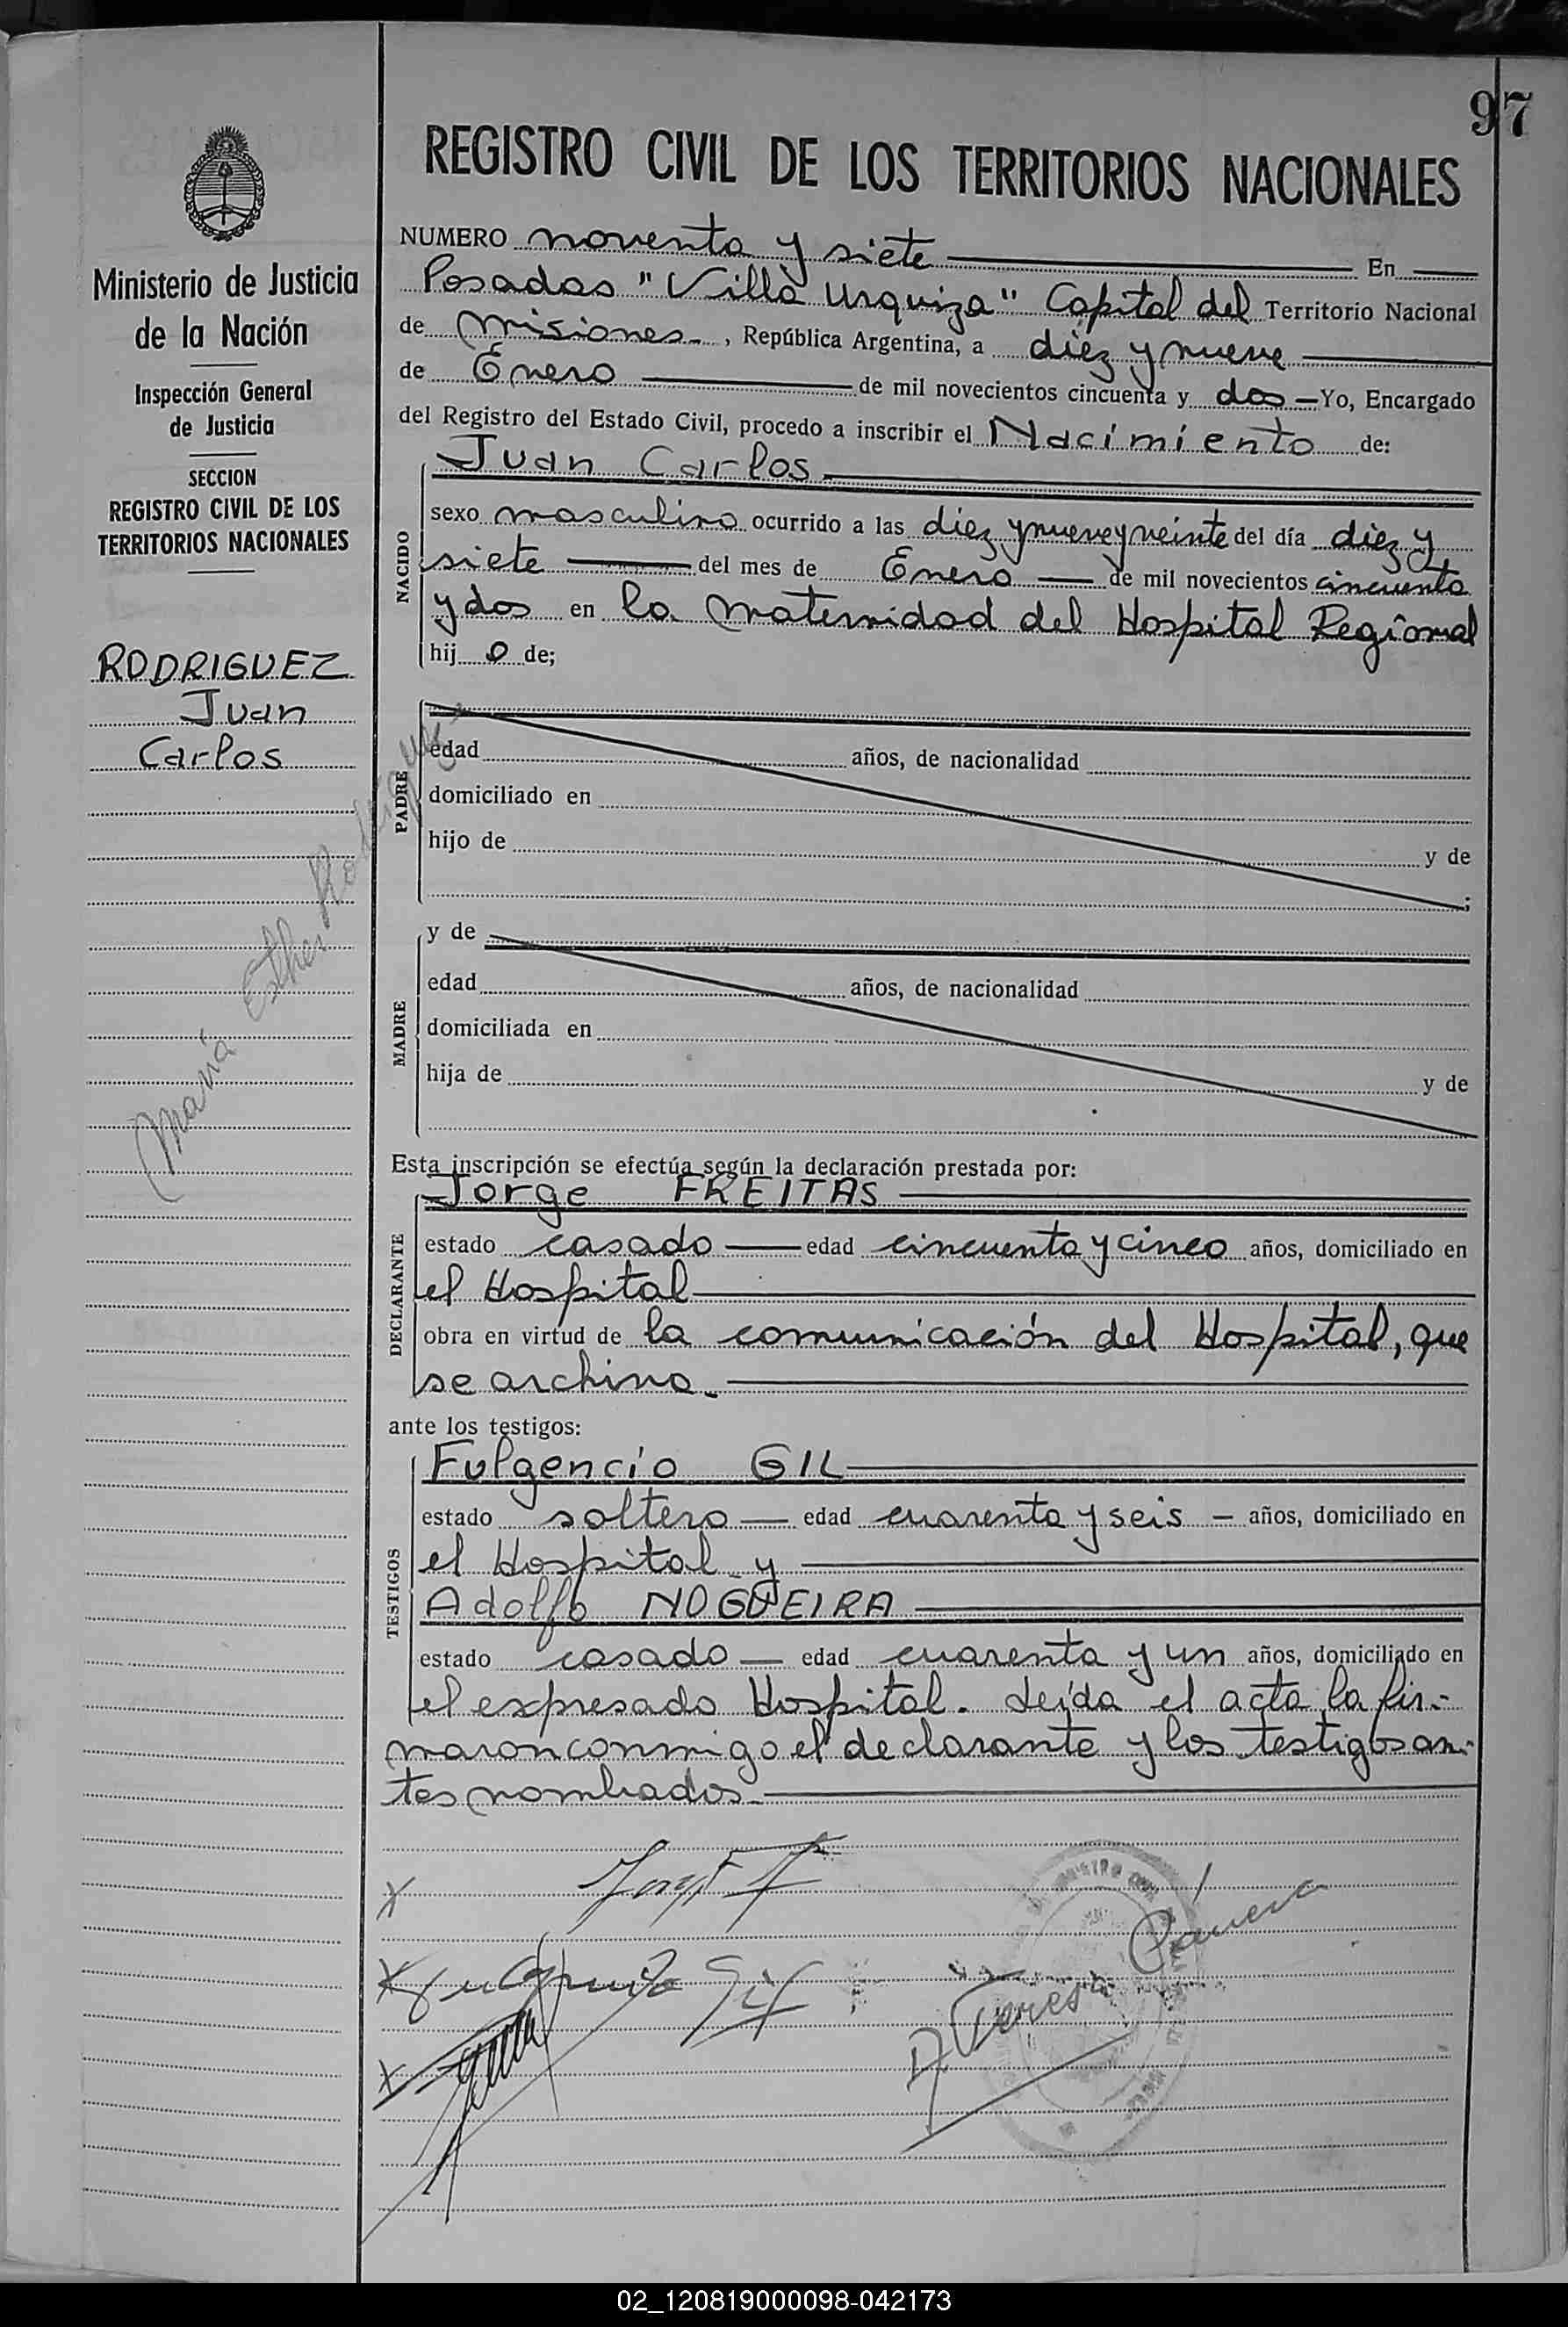 97
REGISTRO CIVIL DE LOS TERRITORIOS NACIONALES
Ministerio de Justicia
de la Nación
Inspección General
de Justicia
SECCION
REGISTRO CIVIL DE LOS
TERRITORIOS NACIONALES
RODRIGUEZ
Juan
Carlos
María Esther Rodriguez
NUMERO noventa y siete En
Posadas "Villa Urquiza" Capital del Territorio Nacional
de Misiones, República Argentina, a diez y nueve
de Enero de mil novecientos cincuenta y dos Yo, Encargado
del Registro del Estado Civil, procedo a inscribir el Nacimiento de:
NACIDO
Juan Carlos
sexo masculino ocurrido a las diez y nueve y veinte del día diez y
siete del mes de Enero de mil novecientos cincuenta
y dos en la Maternidad del Hospital Regional
hijo de;
PADRE
edad años, de nacionalidad
domiciliado en
hijo de y de
;
MADRE
y de
edad años, de nacionalidad
domiciliada en
hija de y de
Esta inscripción se efectúa según la declaración prestada por:
DECLARANTE
Jorge FREITAS
estado casado edad cincuenta y cinco años, domiciliado en
el Hospital
obra en virtud de la comunicación del Hospital, que
se archiva.
ante los testigos:
TESTIGOS
Fulgencio GIL
estado soltero edad cuarenta y seis años, domiciliado en
el Hospital y
Adolfo NOGUEIRA
estado casado edad cuarenta y un años, domiciliado en
el expresado Hospital. Leída el acta la fir-
maron conmigo el declarante y los testigos an-
tes nombrados.
Fulgencio Gil
02_120819000098-042173